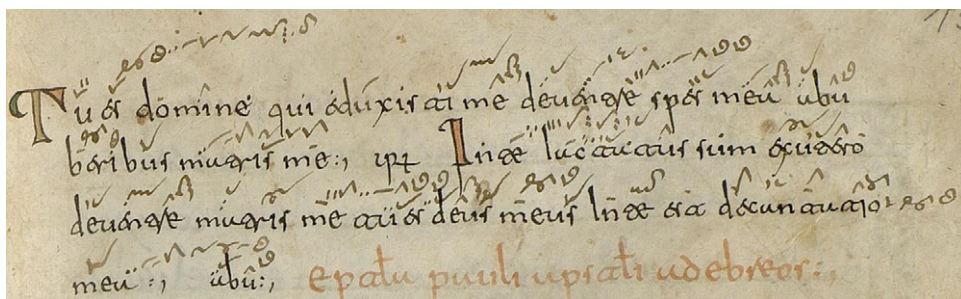 Tu es domine qui eduxisti me de uentre spes mea ab u
beribus matris me:, ipr In te iactatus sum ex utero
de uentre matris me tu es deus meus In te est decantatio
mea :, ab u:, eptla pauli apstli ad ebreos:,